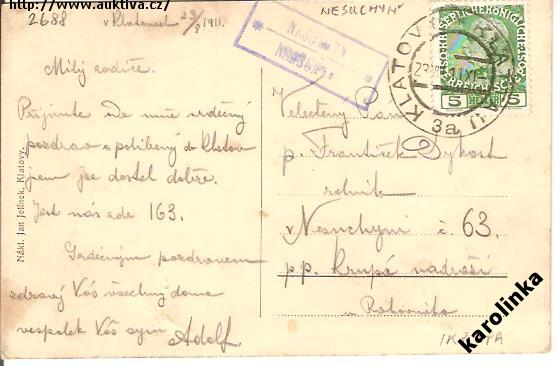 http://www.auktiva.cz/
2688
v Klatovech 23/8 1911.
NESUCHYŇ
Milý rodiče.
Přijměte ode mne srdečný
pozdrav a políbení do Klatov
jsem jse dostal dobře.
Jest nás zde 163.
Srdečným pozdravem
zdravej Vás všechny doma
vespolek Váš syn Adolf
Nákl. Jan Jelínek, Klatovy.
KLATOVY
KLATTAU
3a
5 HELLER 5
Velectěný Pan
p. František Dykast
rolník
v Nesuchyni č. 63.
p.p. Krupá nádraží
u Rakovníka
karolinka